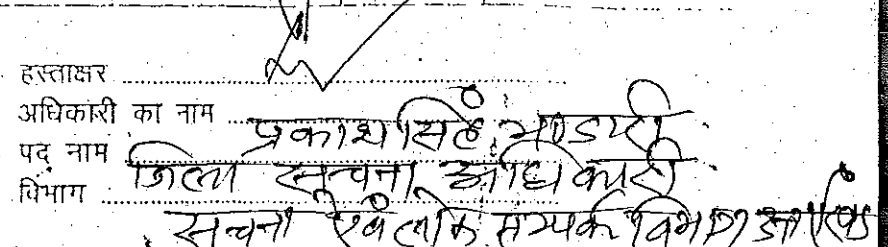 हस्ताक्षर
अधिकारी का नाम प्रकाश सिंह भण्डारी
पद नाम जिला सूचना अधिकारी
विभाग सूचना एवं लोक सम्पर्क विभाग